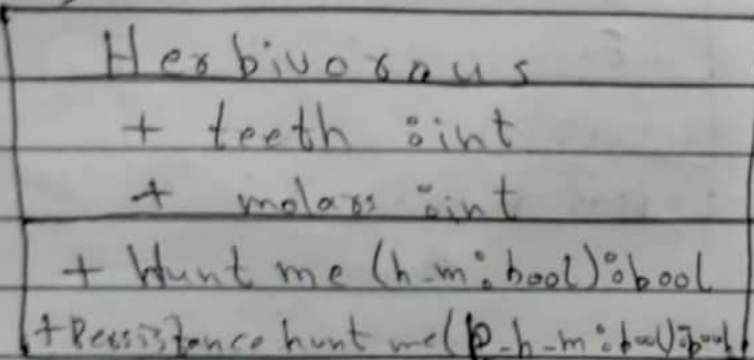 Herbivorous
+ teeth : int
+ molars : int
+ Hunt me (h-m : bool) : bool
+ Ressistance hunt me (R-h-m : bool) : bool